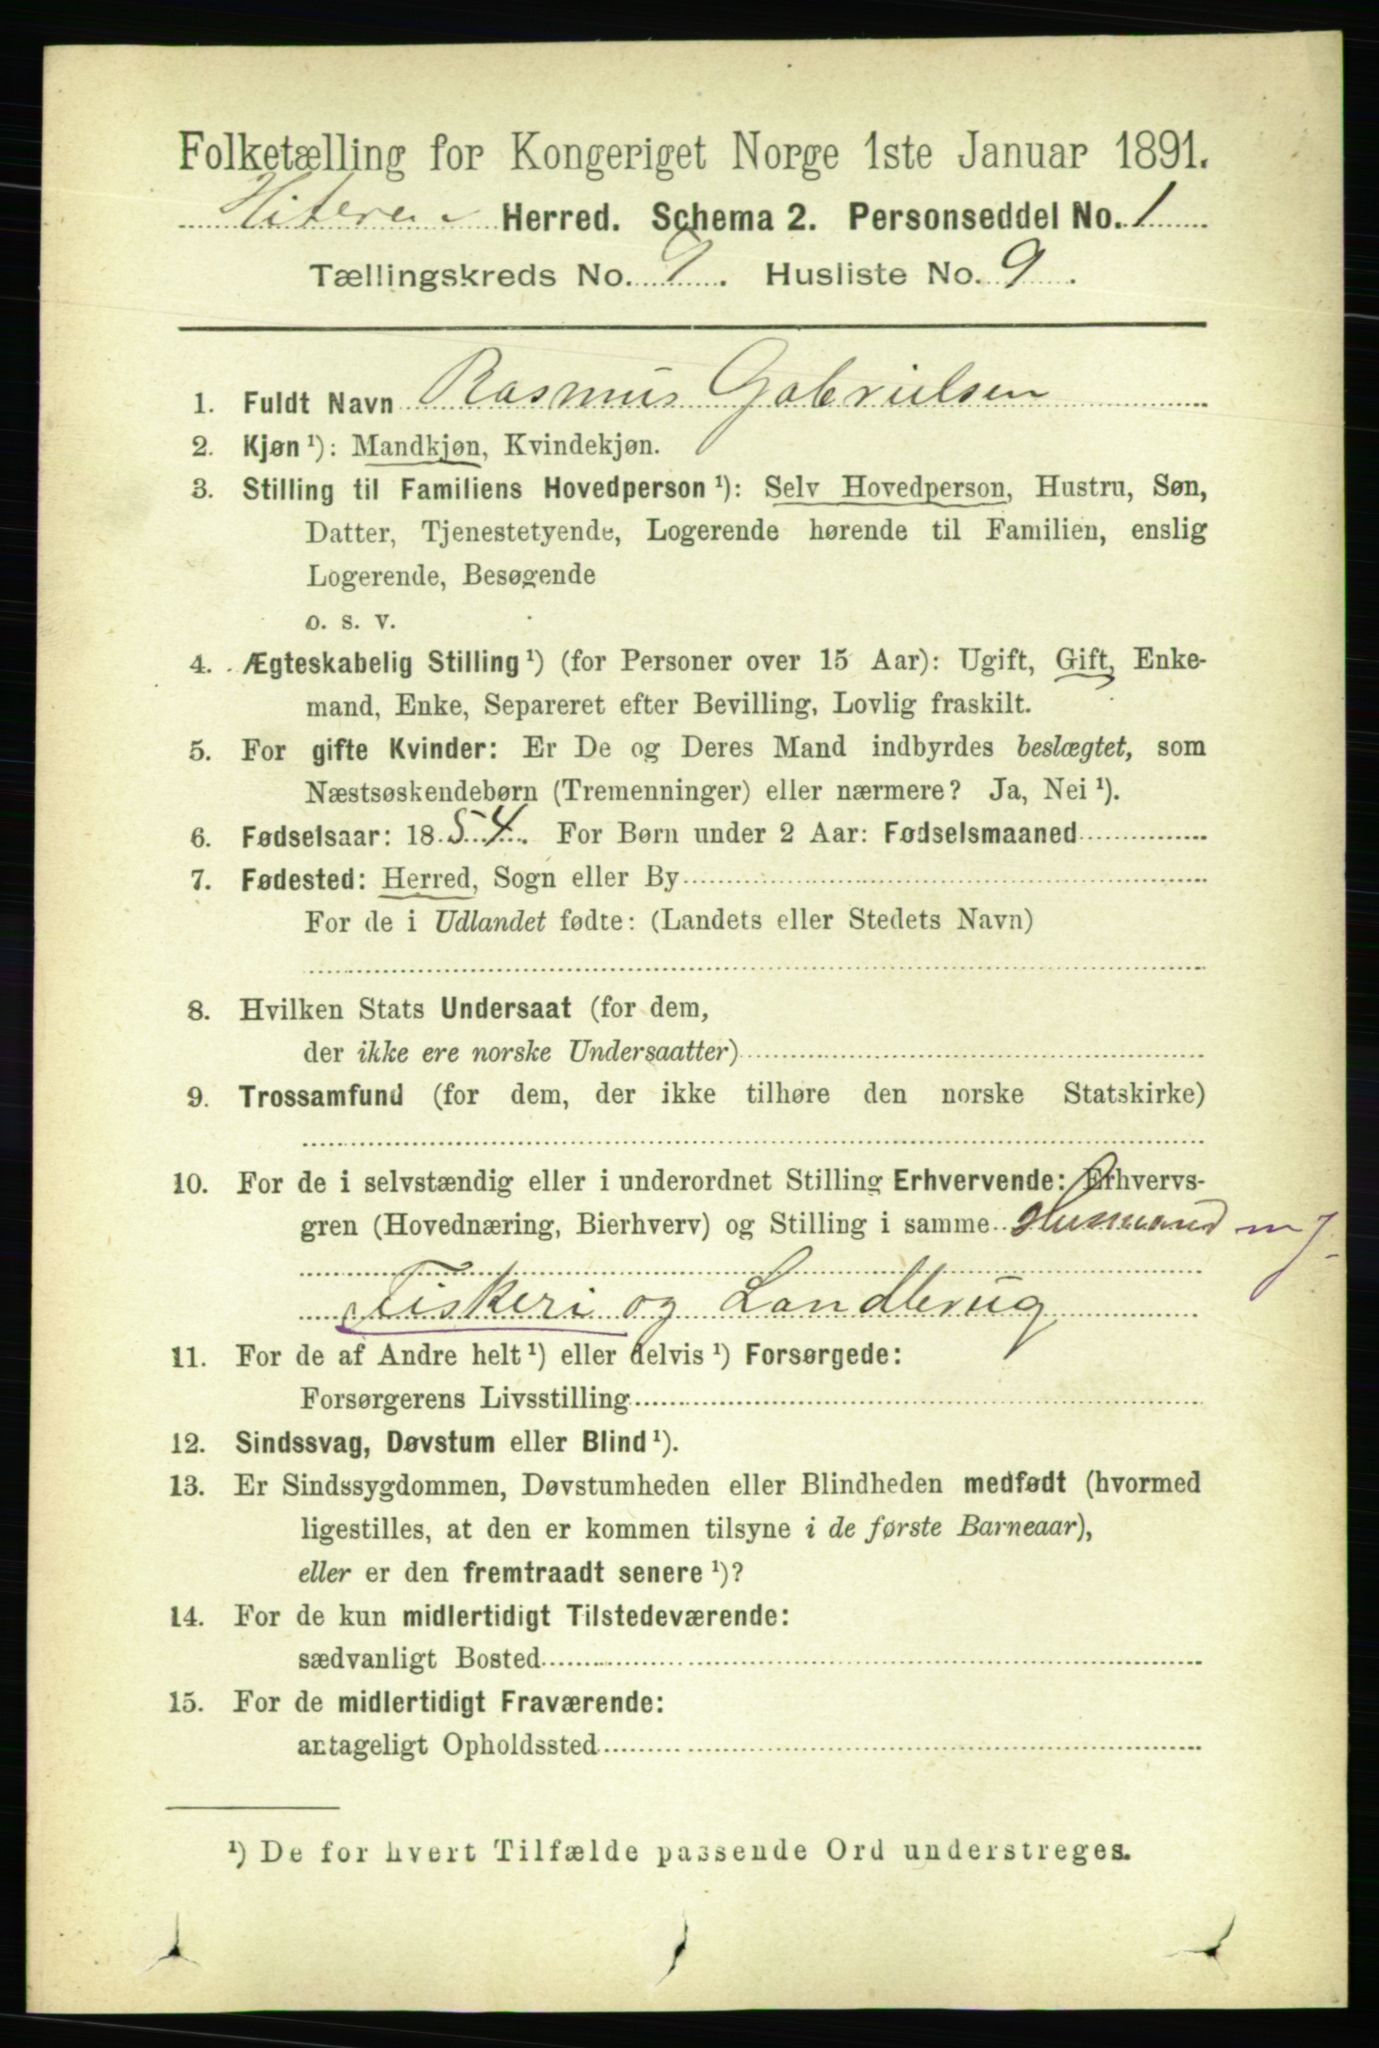 Folketælling for Kongeriget Norge 1ste Januar 1891.
Hiteren Herred. Schema 2. Personseddel No. 1
Tællingskreds No. 9. Husliste No. 9.
1. Fuldt Navn Rasmus Gabrielsen
2. Kjøn ¹): Mandkjøn, Kvindekjøn.
3. Stilling til Familiens Hovedperson ¹): Selv Hovedperson, Hustru, Søn,
Datter, Tjenestetyende, Logerende hørende til Familien, enslig
Logerende, Besøgende
o. s. v.
4. Ægteskabelig Stilling ¹) (for Personer over 15 Aar): Ugift, Gift, Enke-
mand, Enke, Separeret efter Bevilling, Lovlig fraskilt.
5. For gifte Kvinder: Er De og Deres Mand indbyrdes beslægtet, som
Næstsøskendebørn (Tremenninger) eller nærmere? Ja, Nei ¹).
6. Fødselsaar: 1854. For Børn under 2 Aar: Fødselsmaaned
7. Fødested: Herred, Sogn eller By
For de i Udlandet fødte: (Landets eller Stedets Navn)
8. Hvilken Stats Undersaat (for dem,
der ikke ere norske Undersaatter)
9. Trossamfund (for dem, der ikke tilhøre den norske Statskirke)
10. For de i selvstændig eller i underordnet Stilling Erhvervende: Erhvervs-
gren (Hovednæring, Bierhverv) og Stilling i samme Husmand m J.
Fiskeri og Landbrug
11. For de af Andre helt ¹) eller delvis ¹) Forsørgede:
Forsørgerens Livsstilling
12. Sindssvag, Døvstum eller Blind ¹).
13. Er Sindssygdommen, Døvstumheden eller Blindheden medfødt (hvormed
ligestilles, at den er kommen tilsyne i de første Barneaar),
eller er den fremtraadt senere ¹)?
14. For de kun midlertidigt Tilstedeværende:
sædvanligt Bosted
15. For de midlertidigt Fraværende:
antageligt Opholdssted
¹) De for hvert Tilfælde passende Ord understreges.